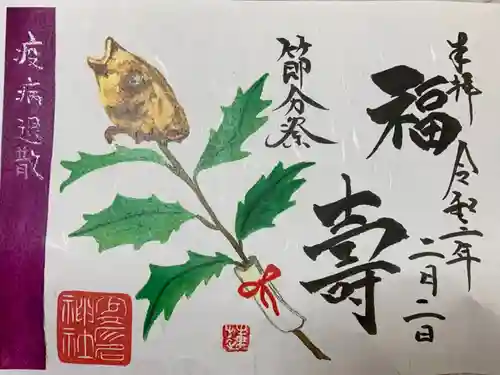 奉拝
令和三年
二月二日
福
壽
節分祭
疫病退散